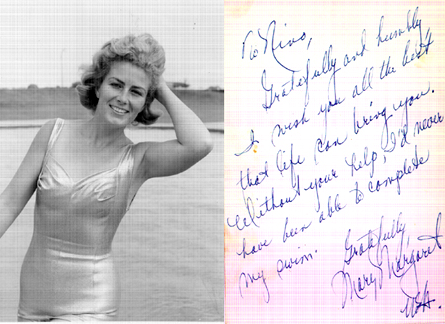 To Nino,
Gratefully and humbly
I wish you all the best
that life can bring you.
Without your help, I'd never
have been able to complete
my swim.
Gratefully
Mary Margaret